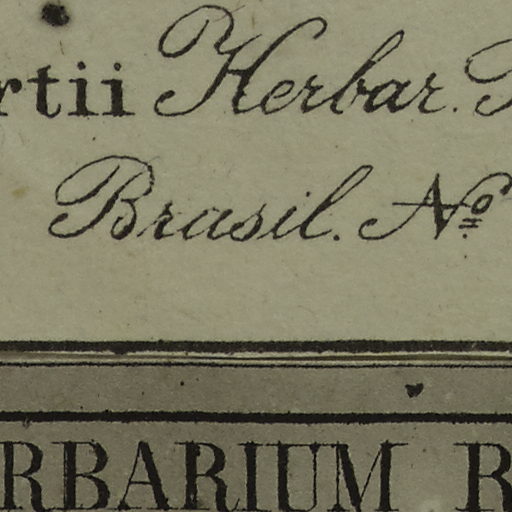 rtii Herbar.
Brasil. No
ERBARIUM R